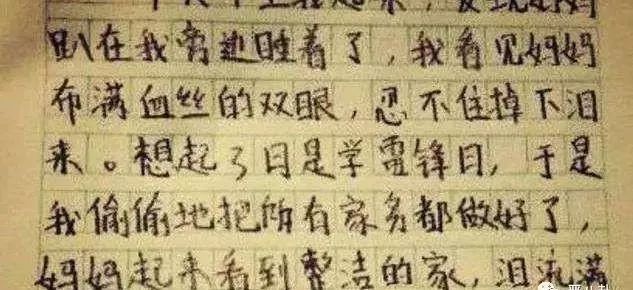 上我起来，发现妈妈
趴在我旁边睡着了，我看见妈妈
布满血丝的双眼，忍不住掉下泪
来。想起了日是学雷锋日，于是
我偷偷地把所有家务都做好了，
妈妈起来看到整洁的家，泪流满